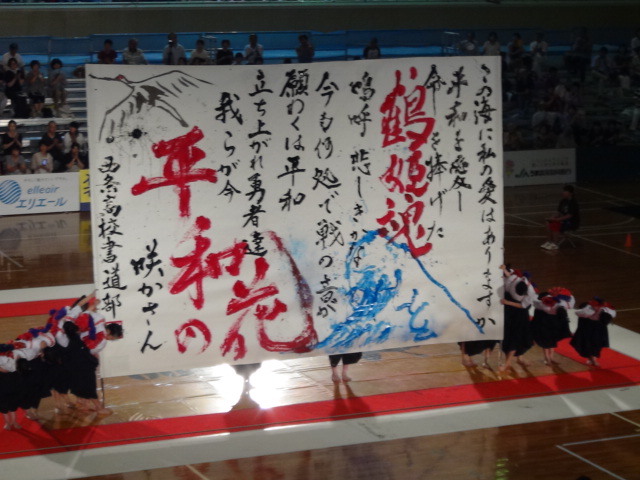 この海に私の愛はありますか
平和を愛し
命を捧げた
鶴姫魂を
嗚呼 悲しきかな
今も何処で戦の音が
願わくは平和
立ち上がれ勇者達
我らが今
平和の花
咲かさん
高校書道部
elleair
エリエール